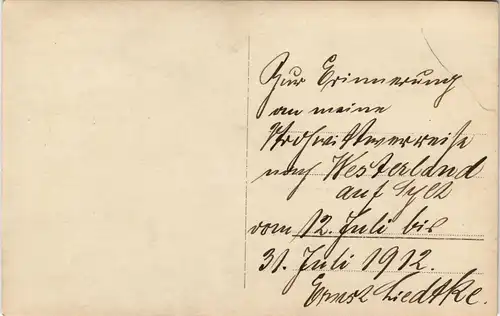 Zur Erinnerung
an meine
Strohwittwerreise
nach Westerland
auf Sylt
vom 12. Juli bis
31. Juli 1912.
Ernst Liedtke.